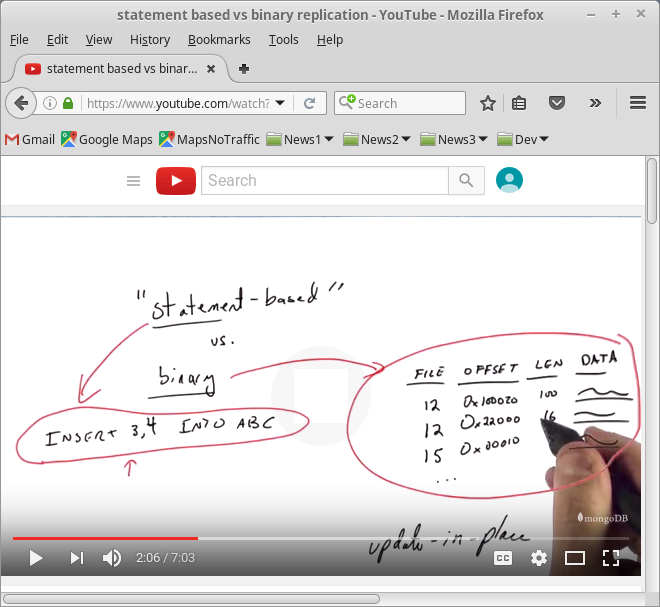 statement based vs binary replication - YouTube - Mozilla Firefox
File Edit View History Bookmarks Tools Help
statement based vs binar...
https://www.youtube.com/watch? Search
Gmail Google Maps MapsNoTraffic News1 News2 News3 Dev
Search
"statement-based"
vs.
binary
INSERT 3,4 INTO ABC
FILE OFFSET LEN DATA
12 0x100020 100
12 0x22000 16
15 0x00010
...
mongoDB
update-in-place
2:06 / 7:03
CC